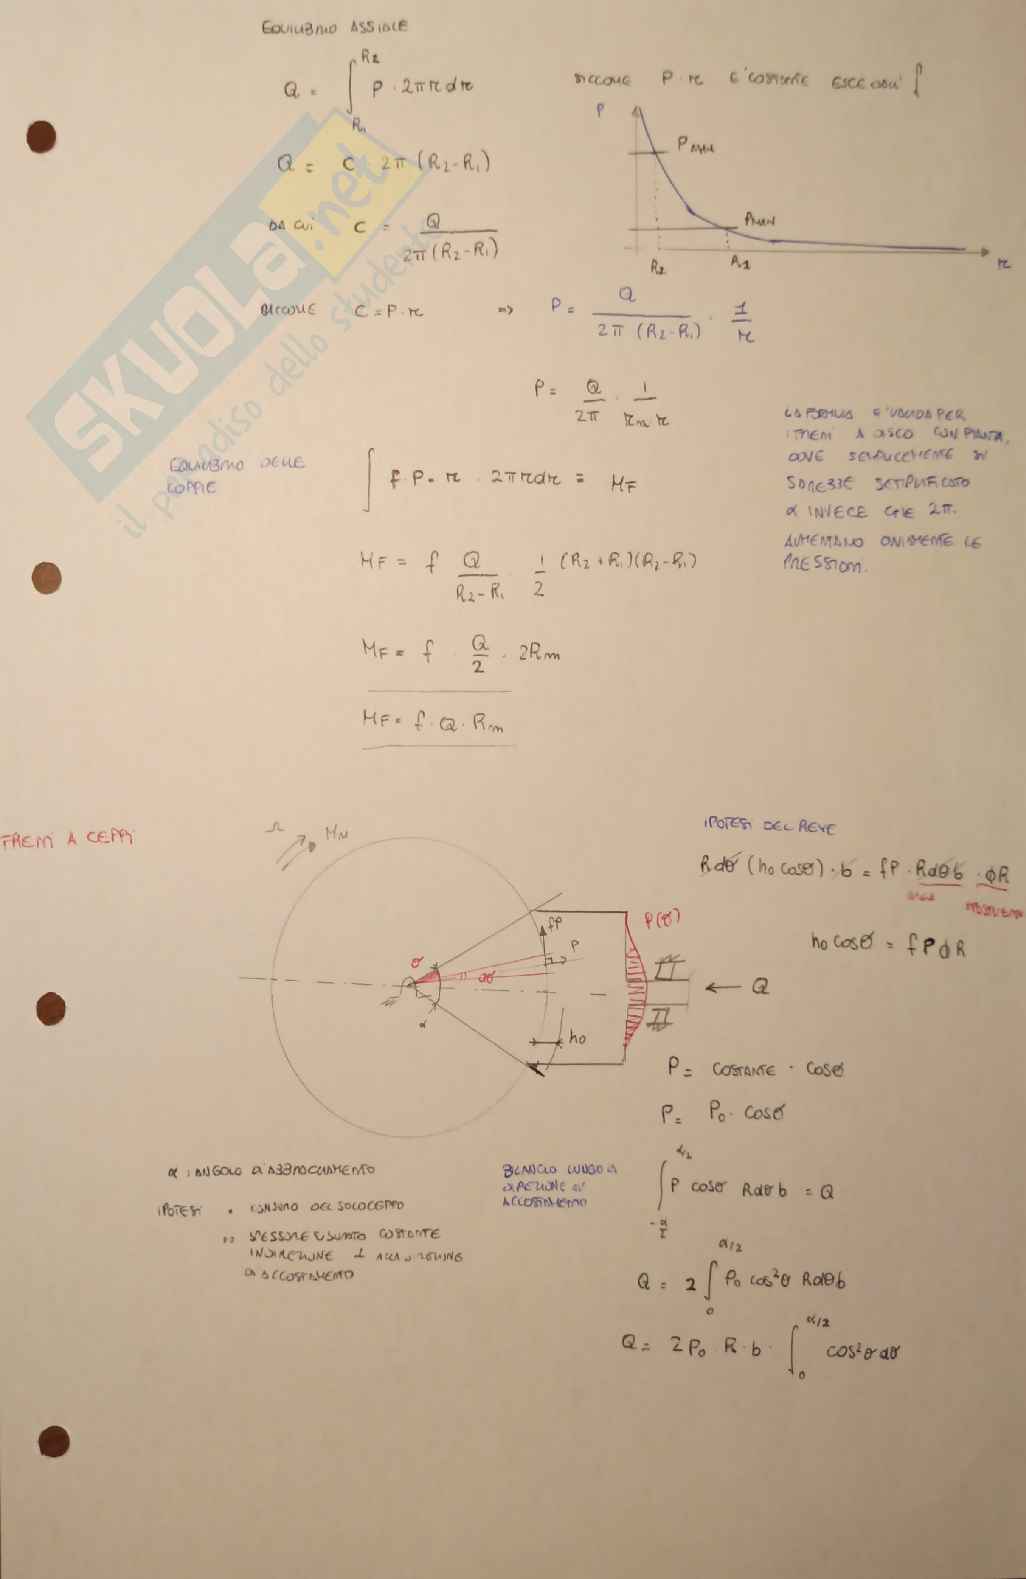 EQUILIBRIO ASSIALE
Q = ∫_{R1}^{R2} P · 2π r dr
SICCOME P · r E' COSTANTE ESCE DALL' ∫
P
PMAX
PMIN
R2
R1
r
Q = C 2π (R2-R1)
DA CUI C = Q / 2π (R2-R1)
SICCOME C = P · r => P = Q / 2π (R2-R1) · 1/r
P = Q/2π · 1/rm r
LA FORMULA E' VALIDA PER
I FRENI A DISCO CON PINZA,
DOVE SEMPLICEMENTE SI
SAREBBE SOSTITUITO
α INVECE CHE 2π.
AUMENTANO OVVIAMENTE LE
PRESSIONI.
EQUILIBRIO DELLE
COPPIE
∫ f · P · r · 2π r dr = MF
MF = f Q / R2-R1 · 1/2 (R2+R1)(R2-R1)
MF = f · Q/2 · 2Rm
MF = f · Q · Rm
SKUOLA.net
il paradiso dello studente
FRENI A CEPPI
Ω
MM
fP
P
θ
dθ
α
h0
P(θ)
Q
IPOTESI DEL REYE
R dθ (h0 cosθ) · b = fP · Rdθb · ϕR
AREA
h0 cosθ = f P ϕ R
P = COSTANTE · cosθ
P = P0 · cosθ
α : ANGOLO D'ABBRACCIAMENTO
IPOTESI • CONSUMO DEL SOLO CEPPO
•• SPESSORE USURATO COSTANTE
IN DIREZIONE ⊥ ALLA DIREZIONE
DI ACCOSTAMENTO
BILANCIO LUNGO LA
DIREZIONE DI
ACCOSTAMENTO
∫_{-α/2}^{α/2} P cosθ Rdθ b = Q
Q = 2 ∫_{0}^{α/2} P0 cos²θ Rdθb
Q = 2 P0 · R · b · ∫_{0}^{α/2} cos²θ dθ